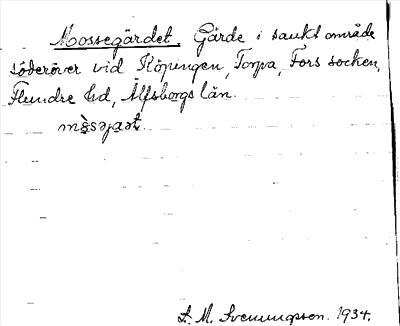 Mossegärdet. Gärde i sankt område
söderöver vid Köpingen, Torpa, Fors socken,
Flundre hd, Älfsborgs län.
S. M. Svenungsson. 1934.